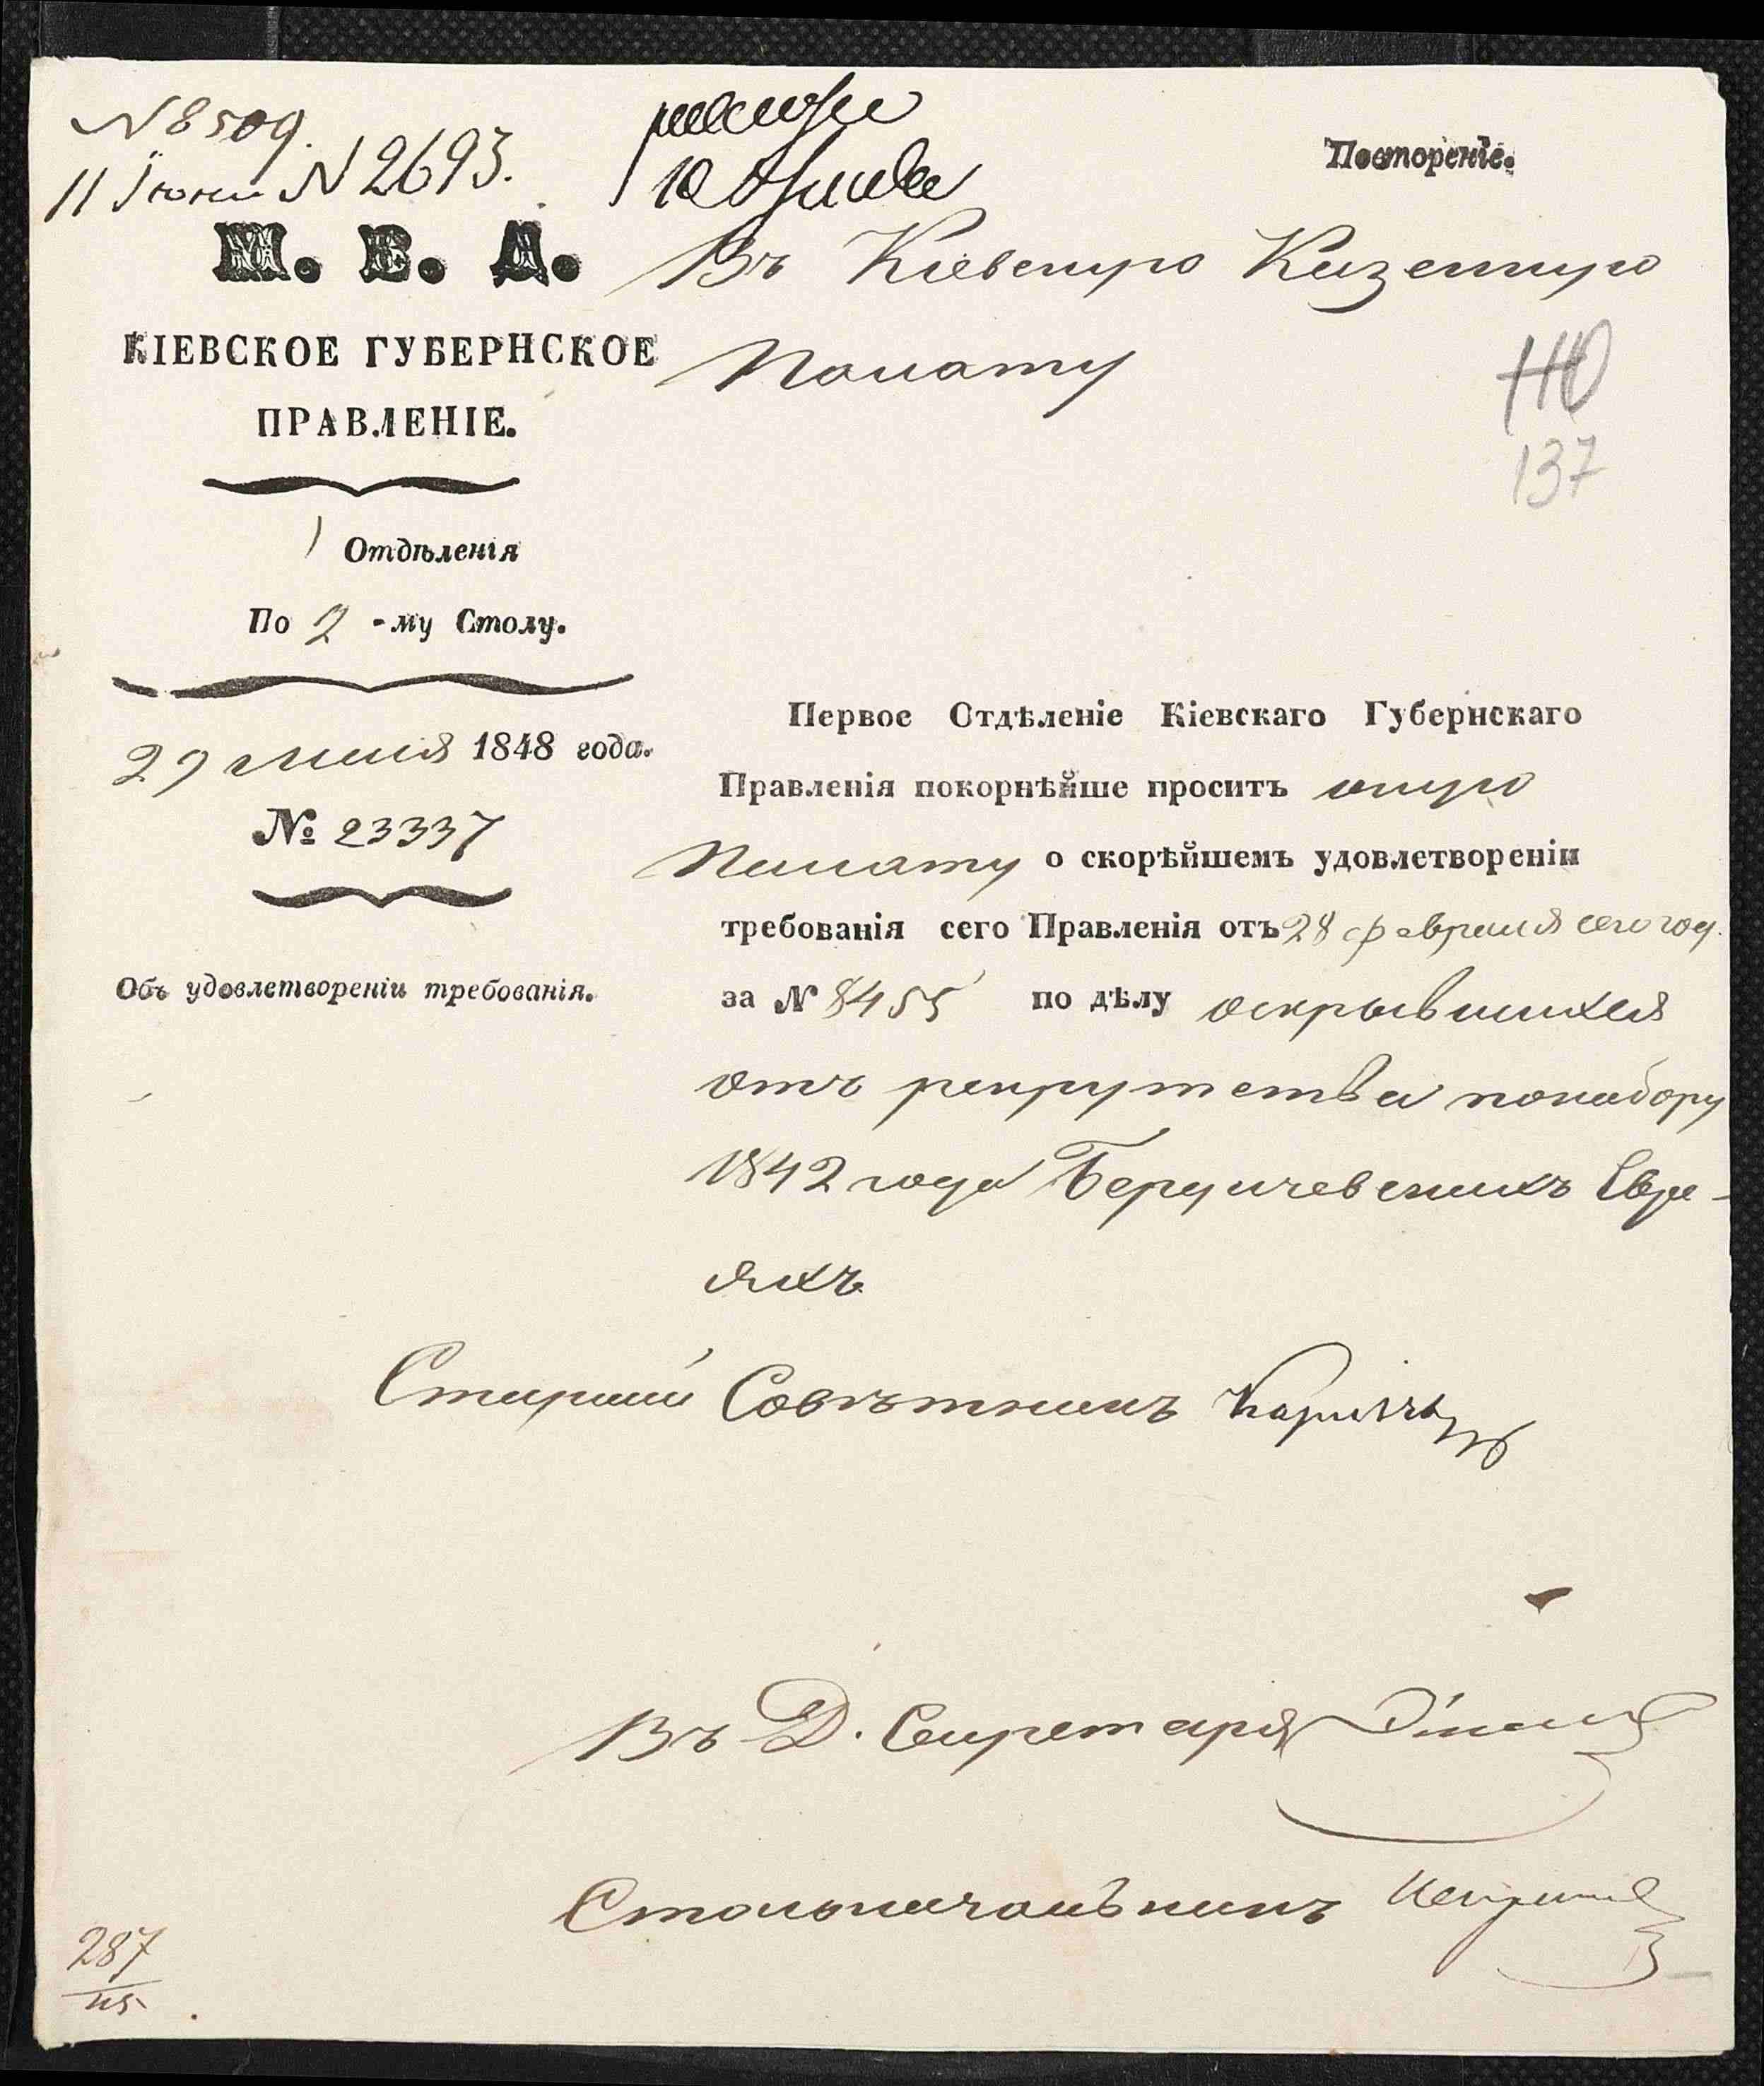 N 8509.
11 Іюня N 2693.
Повтореніе.
М. В. Д.
КІЕВСКОЕ ГУБЕРНСКОЕ
ПРАВЛЕНІЕ.
1 Отдѣленія
По 2 -му Столу.
29 Маия 1848 года.
№ 23337
Объ удовлетвореніи требованія.
Въ Кіевскую Казенную
Палату
110
137
Первое Отдѣленіе Кіевскаго Губернскаго
Правленія покорнѣйше проситъ оную
Палату о скорѣйшемъ удовлетвореніи
требованія сего Правленія отъ 28 февраля сего год.
за N 8455 по дѣлу оскрывшихся
отъ рекрутства понабору
1842 года Бердичевскихъ Евре-
яхъ
Старшій Совѣтникъ
Въ Д. Секретаря
Столоначальникъ
287